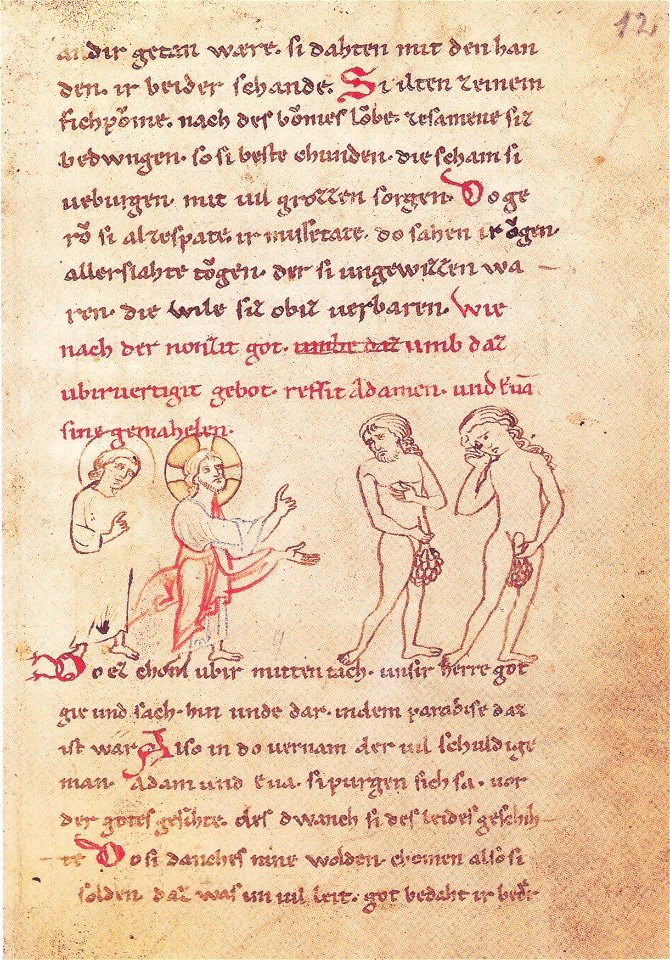 12
andir getan wære. si dahten mit den han
den. ir beider schande. Si ilten zeinem
fichpǒme. nach des bǒmes lǒbe. zesamene siz
bedwngen. so si beste chunden. die scham si
verburgen. mit uil grozzen sorgen. Do ge
rǒ si alzespate. ir missetate. do sahen ir ǒgen.
allerslahte tǒgen. der si ungewizzen wa
ren. die wile siz obiz uerbaren. Wie
nach der nonzit got. umbe daz umb daz
ubiruertigit gebot. reffit Adamen. und Euā
sine gemahelen.
Do ez chom ubir mitten tach. unsir herre got
gie und sach. hin unde dar. indem paradise daz
ist war. Also in do uernam der uil schuldige
man. Adam und Eua. si purgen sich sa. uor
der gotes gesihte. des dwanch si des leides geschih
te. Do si danches nine wolden. chomen also si
solden. daz was im uil leit. got bedaht ir